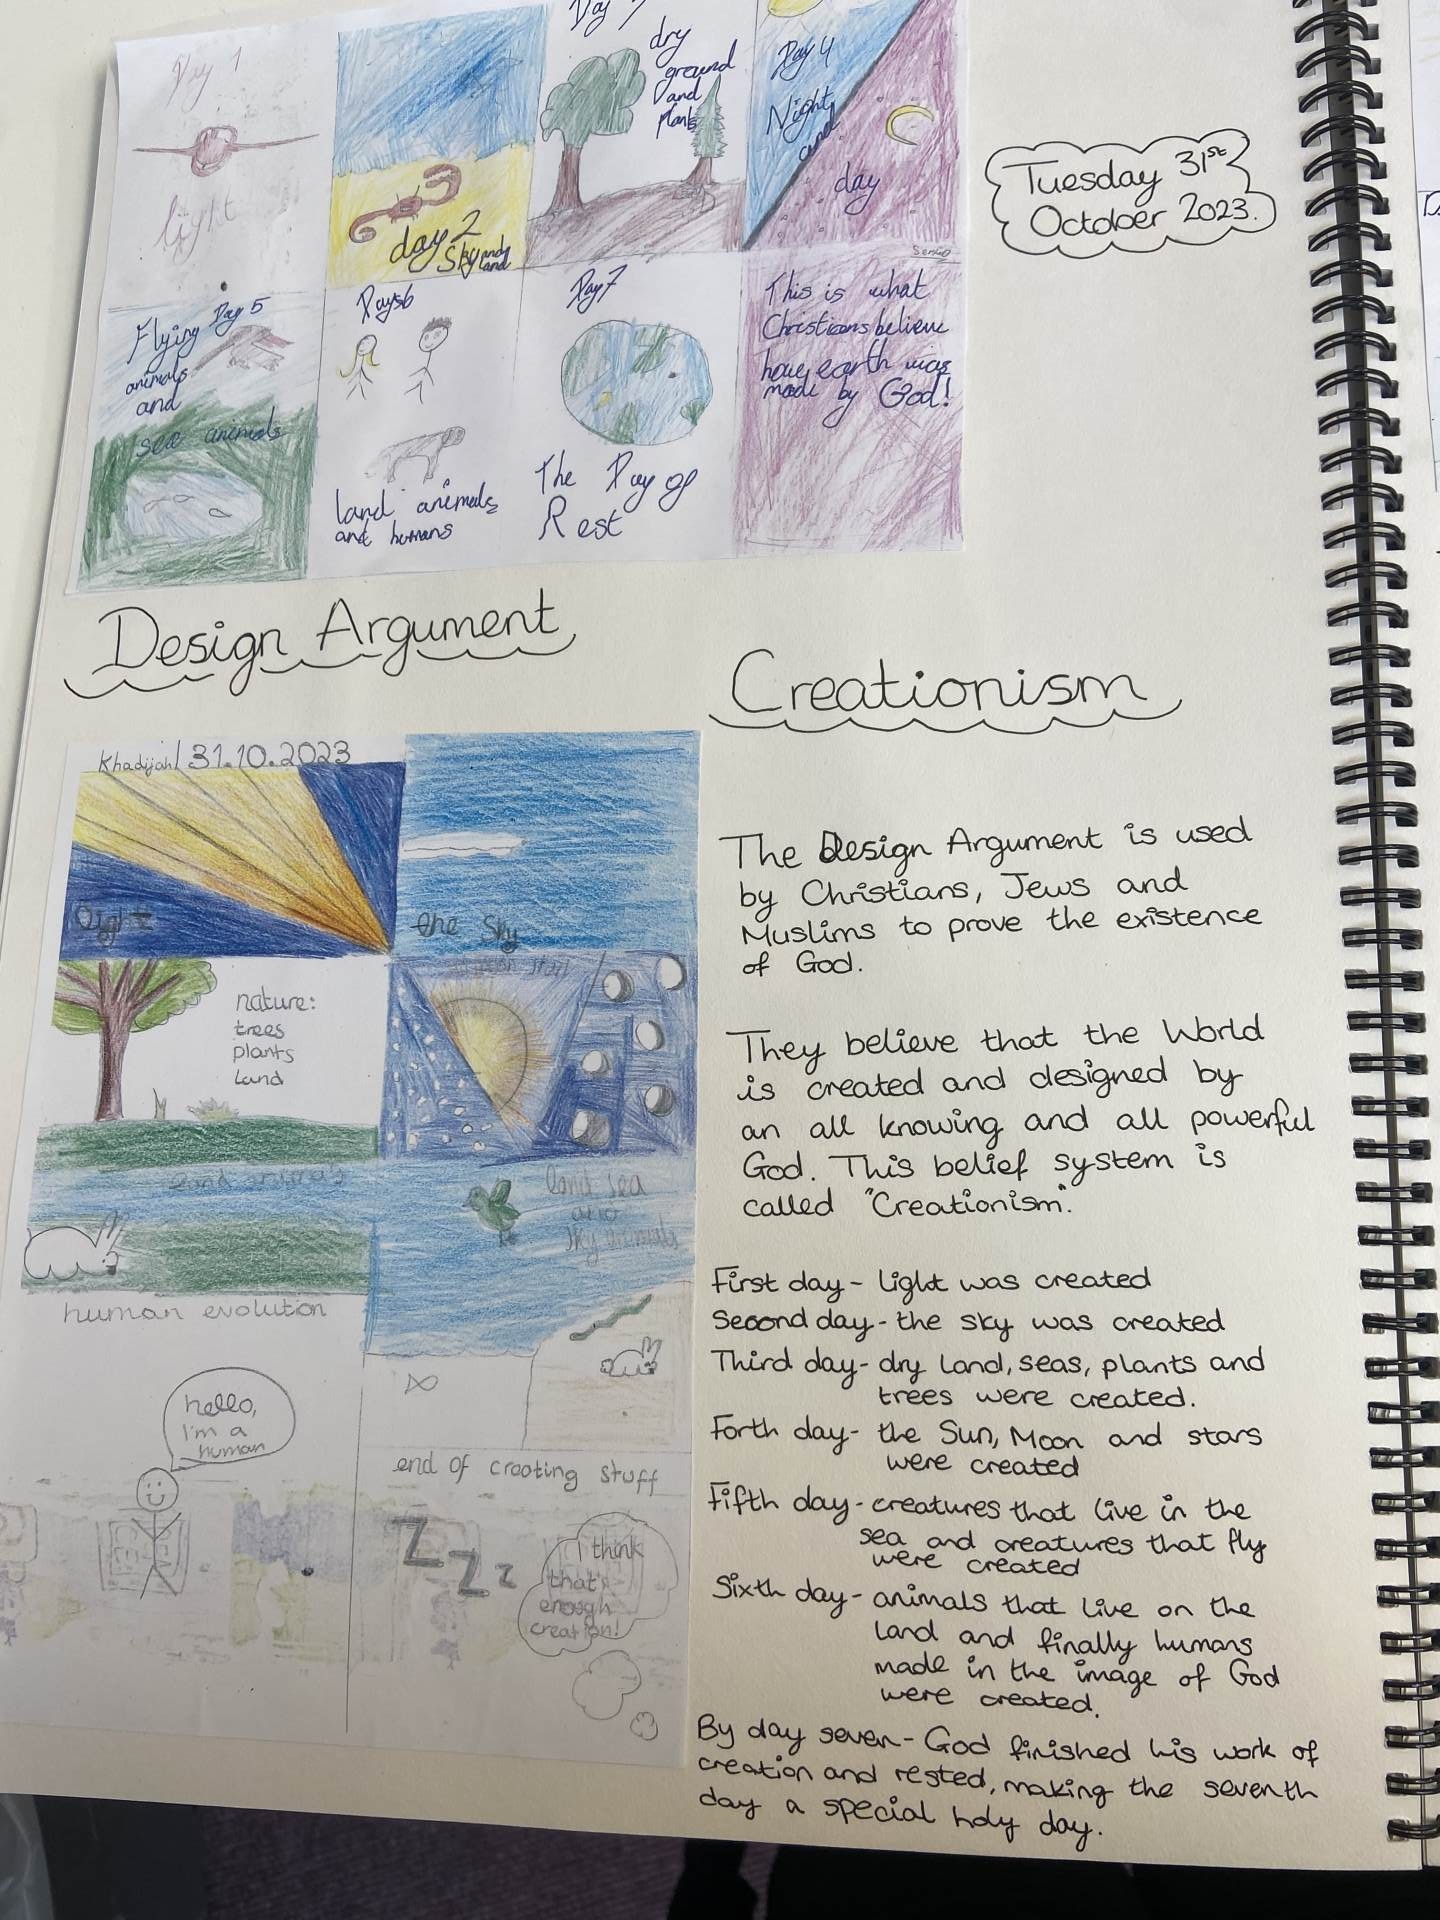 Day 1
light
day 2
Sky and
land
Day
dry
ground
and
plants
Day 4
Night
and
day
Day 5
Flying
animals
and
sea animals
Day 6
land animals
and humans
Day 7
The Day of
Rest
This is what
Christians believe
how earth was
made by God!
Tuesday 31st
October 2023.
Design Argument
Creationism
Khadijah 31.10.2023
light
the Sky
nature:
trees
plants
land
land animals
land sea
and
sky animals
human evolution
hello,
I'm a
human
end of creating stuff
Z Z z
I think
that's
enough
creation!
The Design Argument is used
by Christians, Jews and
Muslims to prove the existence
of God.
They believe that the World
is created and designed by
an all knowing and all powerful
God. This belief system is
called "Creationism".
First day - light was created
Second day - the sky was created
Third day - dry land, seas, plants and
trees were created.
Forth day - the Sun, Moon and stars
were created
Fifth day - creatures that live in the
sea and creatures that fly
were created
Sixth day - animals that live on the
land and finally humans
made in the image of God
were created.
By day seven - God finished his work of
creation and rested, making the seventh
day a special holy day.